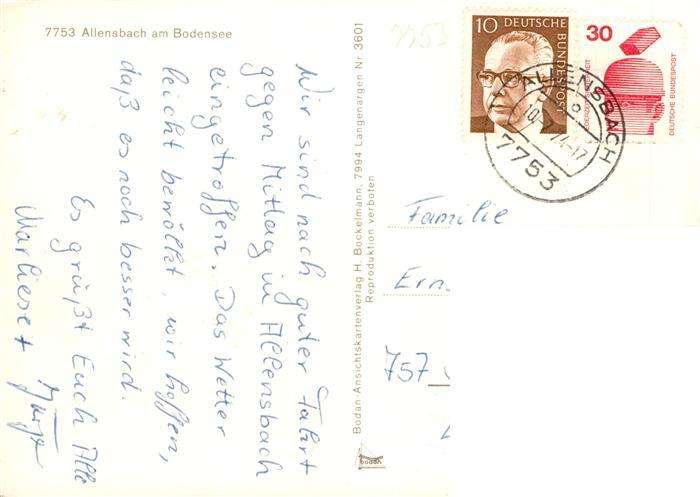 7753 Allensbach am Bodensee
Wir sind nach guter Fahrt
gegen Mittag in Allensbach
eingetroffen. Das Wetter
leicht bewölkt, wir hoffen,
daß es noch besser wird.
Es grüßt Euch Alle
Marliese +
Bodan-Ansichtskartenverlag H. Bockelmann, 7994 Langenargen Nr 3601
Reproduktion verboten
bodan
7753
10 DEUTSCHE BUNDESPOST
30
DEUTSCHE BUNDESPOST
ALLENSBACH
7753
Familie
Ern
757